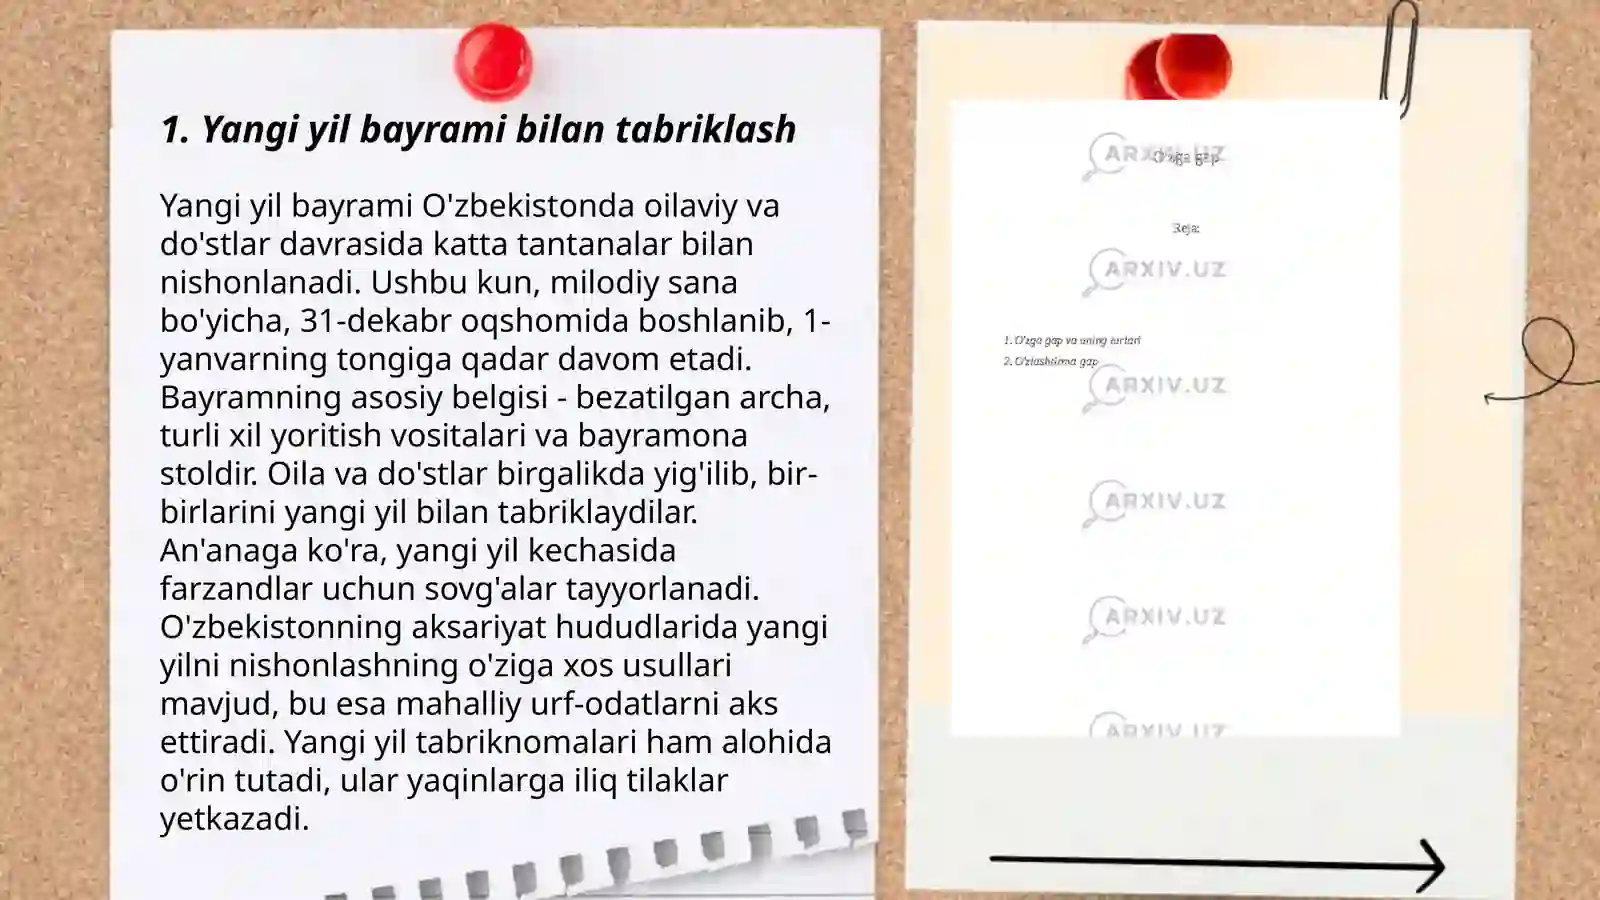 1. Yangi yil bayrami bilan tabriklash
Yangi yil bayrami O'zbekistonda oilaviy va
do'stlar davrasida katta tantanalar bilan
nishonlanadi. Ushbu kun, milodiy sana
bo'yicha, 31-dekabr oqshomida boshlanib, 1-
yanvarning tongiga qadar davom etadi.
Bayramning asosiy belgisi - bezatilgan archa,
turli xil yoritish vositalari va bayramona
stoldir. Oila va do'stlar birgalikda yig'ilib, bir-
birlarini yangi yil bilan tabriklaydilar.
An'anaga ko'ra, yangi yil kechasida
farzandlar uchun sovg'alar tayyorlanadi.
O'zbekistonning aksariyat hududlarida yangi
yilni nishonlashning o'ziga xos usullari
mavjud, bu esa mahalliy urf-odatlarni aks
ettiradi. Yangi yil tabriknomalari ham alohida
o'rin tutadi, ular yaqinlarga iliq tilaklar
yetkazadi.
ARXIV.UZ
O'zga gap
Reja:
ARXIV.UZ
1. O'zga gap va uning turlari
2. O'zlashtirma gap
ARXIV.UZ
ARXIV.UZ
ARXIV.UZ
ARXIV.UZ